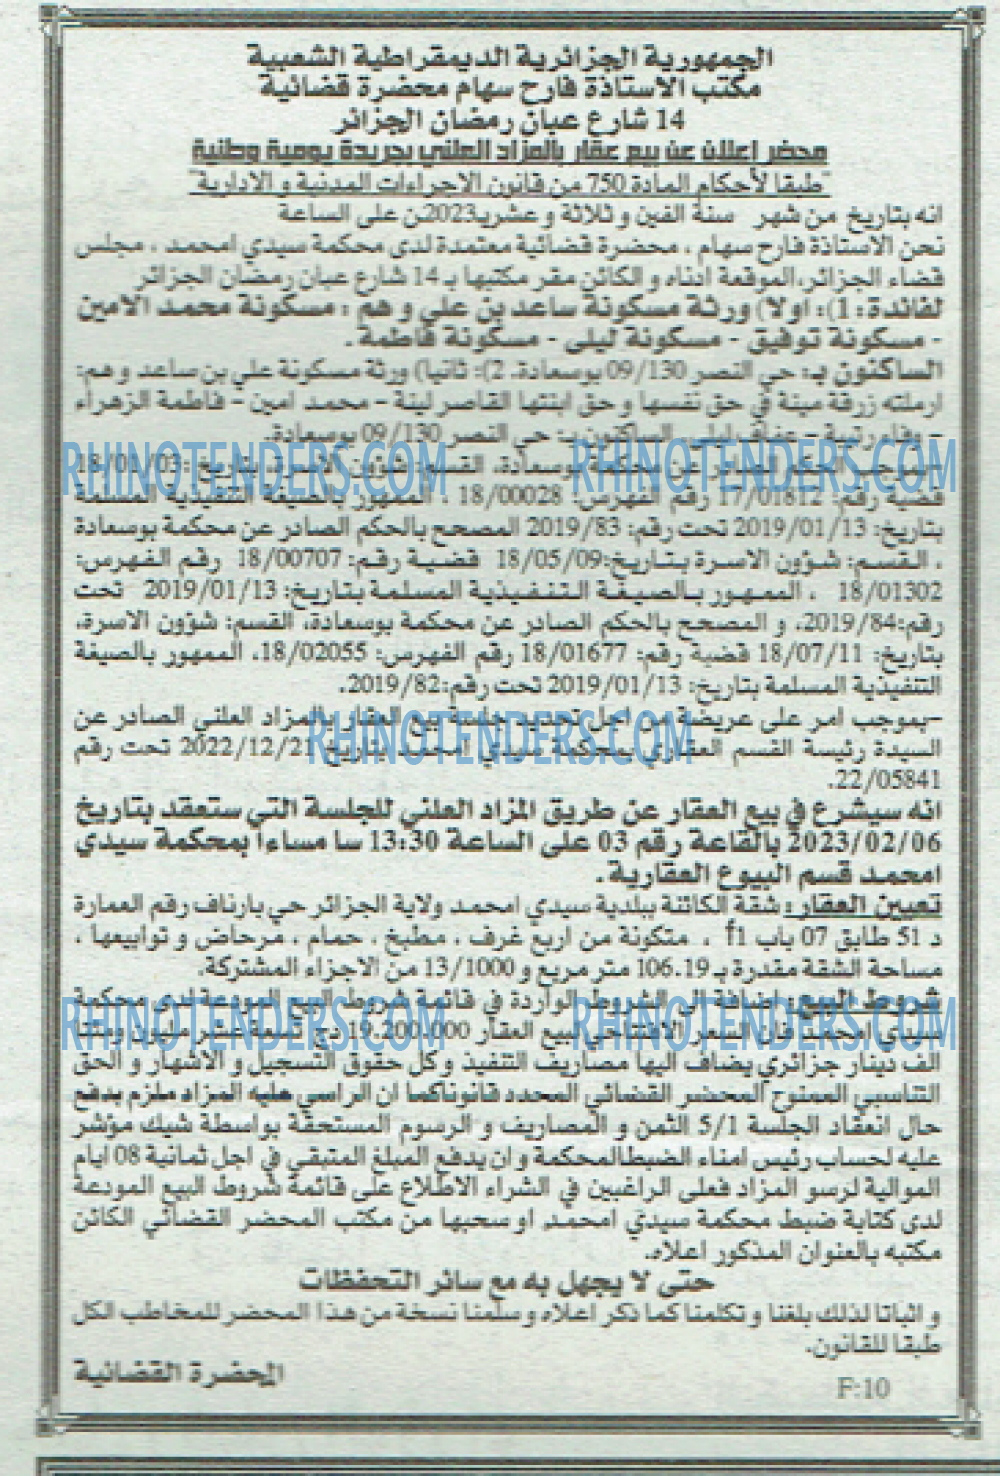 الجمهورية الجزائرية الديمقراطية الشعبية
مكتب الاستاذة فارح سهام محضرة قضائية
14 شارع عبان رمضان الجزائر
محضر إعلان عن بيع عقار بالمزاد العلني بجريدة يومية وطنية
"طبقا لأحكام المادة 750 من قانون الاجراءات المدنية و الادارية"
انه بتاريخ من شهر سنة الفين و ثلاثة و عشرين2023 على الساعة
نحن الاستاذة فارح سهام ، محضرة قضائية معتمدة لدى محكمة سيدي امحمد ، مجلس
قضاء الجزائر،الموقعة ادناه و الكائن مقر مكتبها بـ 14 شارع عبان رمضان الجزائر
لفائدة : 1): اولا) ورثة مسكونة ساعد بن علي و هم : مسكونة محمد الامين
- مسكونة توفيق - مسكونة ليلى - مسكونة فاطمة .
الساكنون بـ: حي النصر 09/130 بوسعادة. 2): ثانيا) ورثة مسكونة علي بن ساعد و هم:
ارملته زرقة مينة في حق نفسها و حق ابنتها القاصر لينة - محمد امين - فاطمة الزهراء
- وفاء رتيبة - عفاف الساكنون بـ: حي النصر 09/130 بوسعادة.
-بموجب الحكم الصادر عن محكمة بوسعادة، القسم: شؤون الاسرة، بتاريخ: 18/01/03
قضية رقم: 17/01812 رقم الفهرس: 18/00028 ، الممهور بالصيغة التنفيذية المسلمة
بتاريخ: 2019/01/13 تحت رقم: 2019/83 المصحح بالحكم الصادر عن محكمة بوسعادة
، القسم: شؤون الاسرة بتاريخ:18/05/09 قضية رقم: 18/00707 رقم الفهرس:
18/01302 ، الممهور بالصيغة التنفيذية المسلمة بتاريخ: 2019/01/13 تحت
رقم:2019/84، و المصحح بالحكم الصادر عن محكمة بوسعادة، القسم: شؤون الاسرة،
بتاريخ: 18/07/11 قضية رقم: 18/01677 رقم الفهرس: 18/02055، الممهور بالصيغة
التنفيذية المسلمة بتاريخ: 2019/01/13 تحت رقم:2019/82.
-بموجب امر على عريضة من اجل تحديد جلسة بيع العقار بالمزاد العلني الصادر عن
السيدة رئيسة القسم العقاري بمحكمة سيدي امحمد بتاريخ 2022/12/21 تحت رقم
22/05841.
انه سيشرع في بيع العقار عن طريق المزاد العلني للجلسة التي ستعقد بتاريخ
2023/02/06 بالقاعة رقم 03 على الساعة 13:30 سا مساءا بمحكمة سيدي
امحمد قسم البيوع العقارية .
تعيين العقار : شقة الكائنة ببلدية سيدي امحمد ولاية الجزائر حي بارناف رقم العمارة
د 51 طابق 07 باب f1 ، متكونة من اربع غرف ، مطبخ ، حمام ، مرحاض و توابيعها ،
مساحة الشقة مقدرة بـ 106.19 متر مربع و 13/1000 من الاجزاء المشتركة.
شروط البيع: اضافة الى الشروط الواردة في قائمة شروط البيع المودعة لدى محكمة
سيدي امحمد، فان السعر الافتتاحي لبيع العقار 19.200.000دج تسعة عشر مليون ومئتا
الف دينار جزائري يضاف اليها مصاريف التنفيذ و كل حقوق التسجيل و الاشهار و الحق
التناسبي الممنوح المحضر القضائي المحدد قانوناكما ان الراسي عليه المزاد ملزم بدفع
حال انعقاد الجلسة 5/1 الثمن و المصاريف و الرسوم المستحقة بواسطة شيك مؤشر
عليه لحساب رئيس امناء الضبطالمحكمة و ان يدفع المبلغ المتبقي في اجل ثمانية 08 ايام
الموالية لرسو المزاد فعلى الراغبين في الشراء الاطلاع على قائمة شروط البيع المودعة
لدى كتابة ضبط محكمة سيدي امحمد، او سحبها من مكتب المحضر القضائي الكائن
مكتبه بالعنوان المذكور اعلاه.
حتى لا يجهل به مع سائر التحفظات
و اثباتا لذلك بلغنا و تكلمنا كما ذكر اعلاه و سلمنا نسخة من هذا المحضر للمخاطب الكل
طبقا للقانون.
المحضرة القضائية
F:10
RHINOTENDERS.COM
RHINOTENDERS.COM
RHINOTENDERS.COM
RHINOTENDERS.COM
RHINOTENDERS.COM